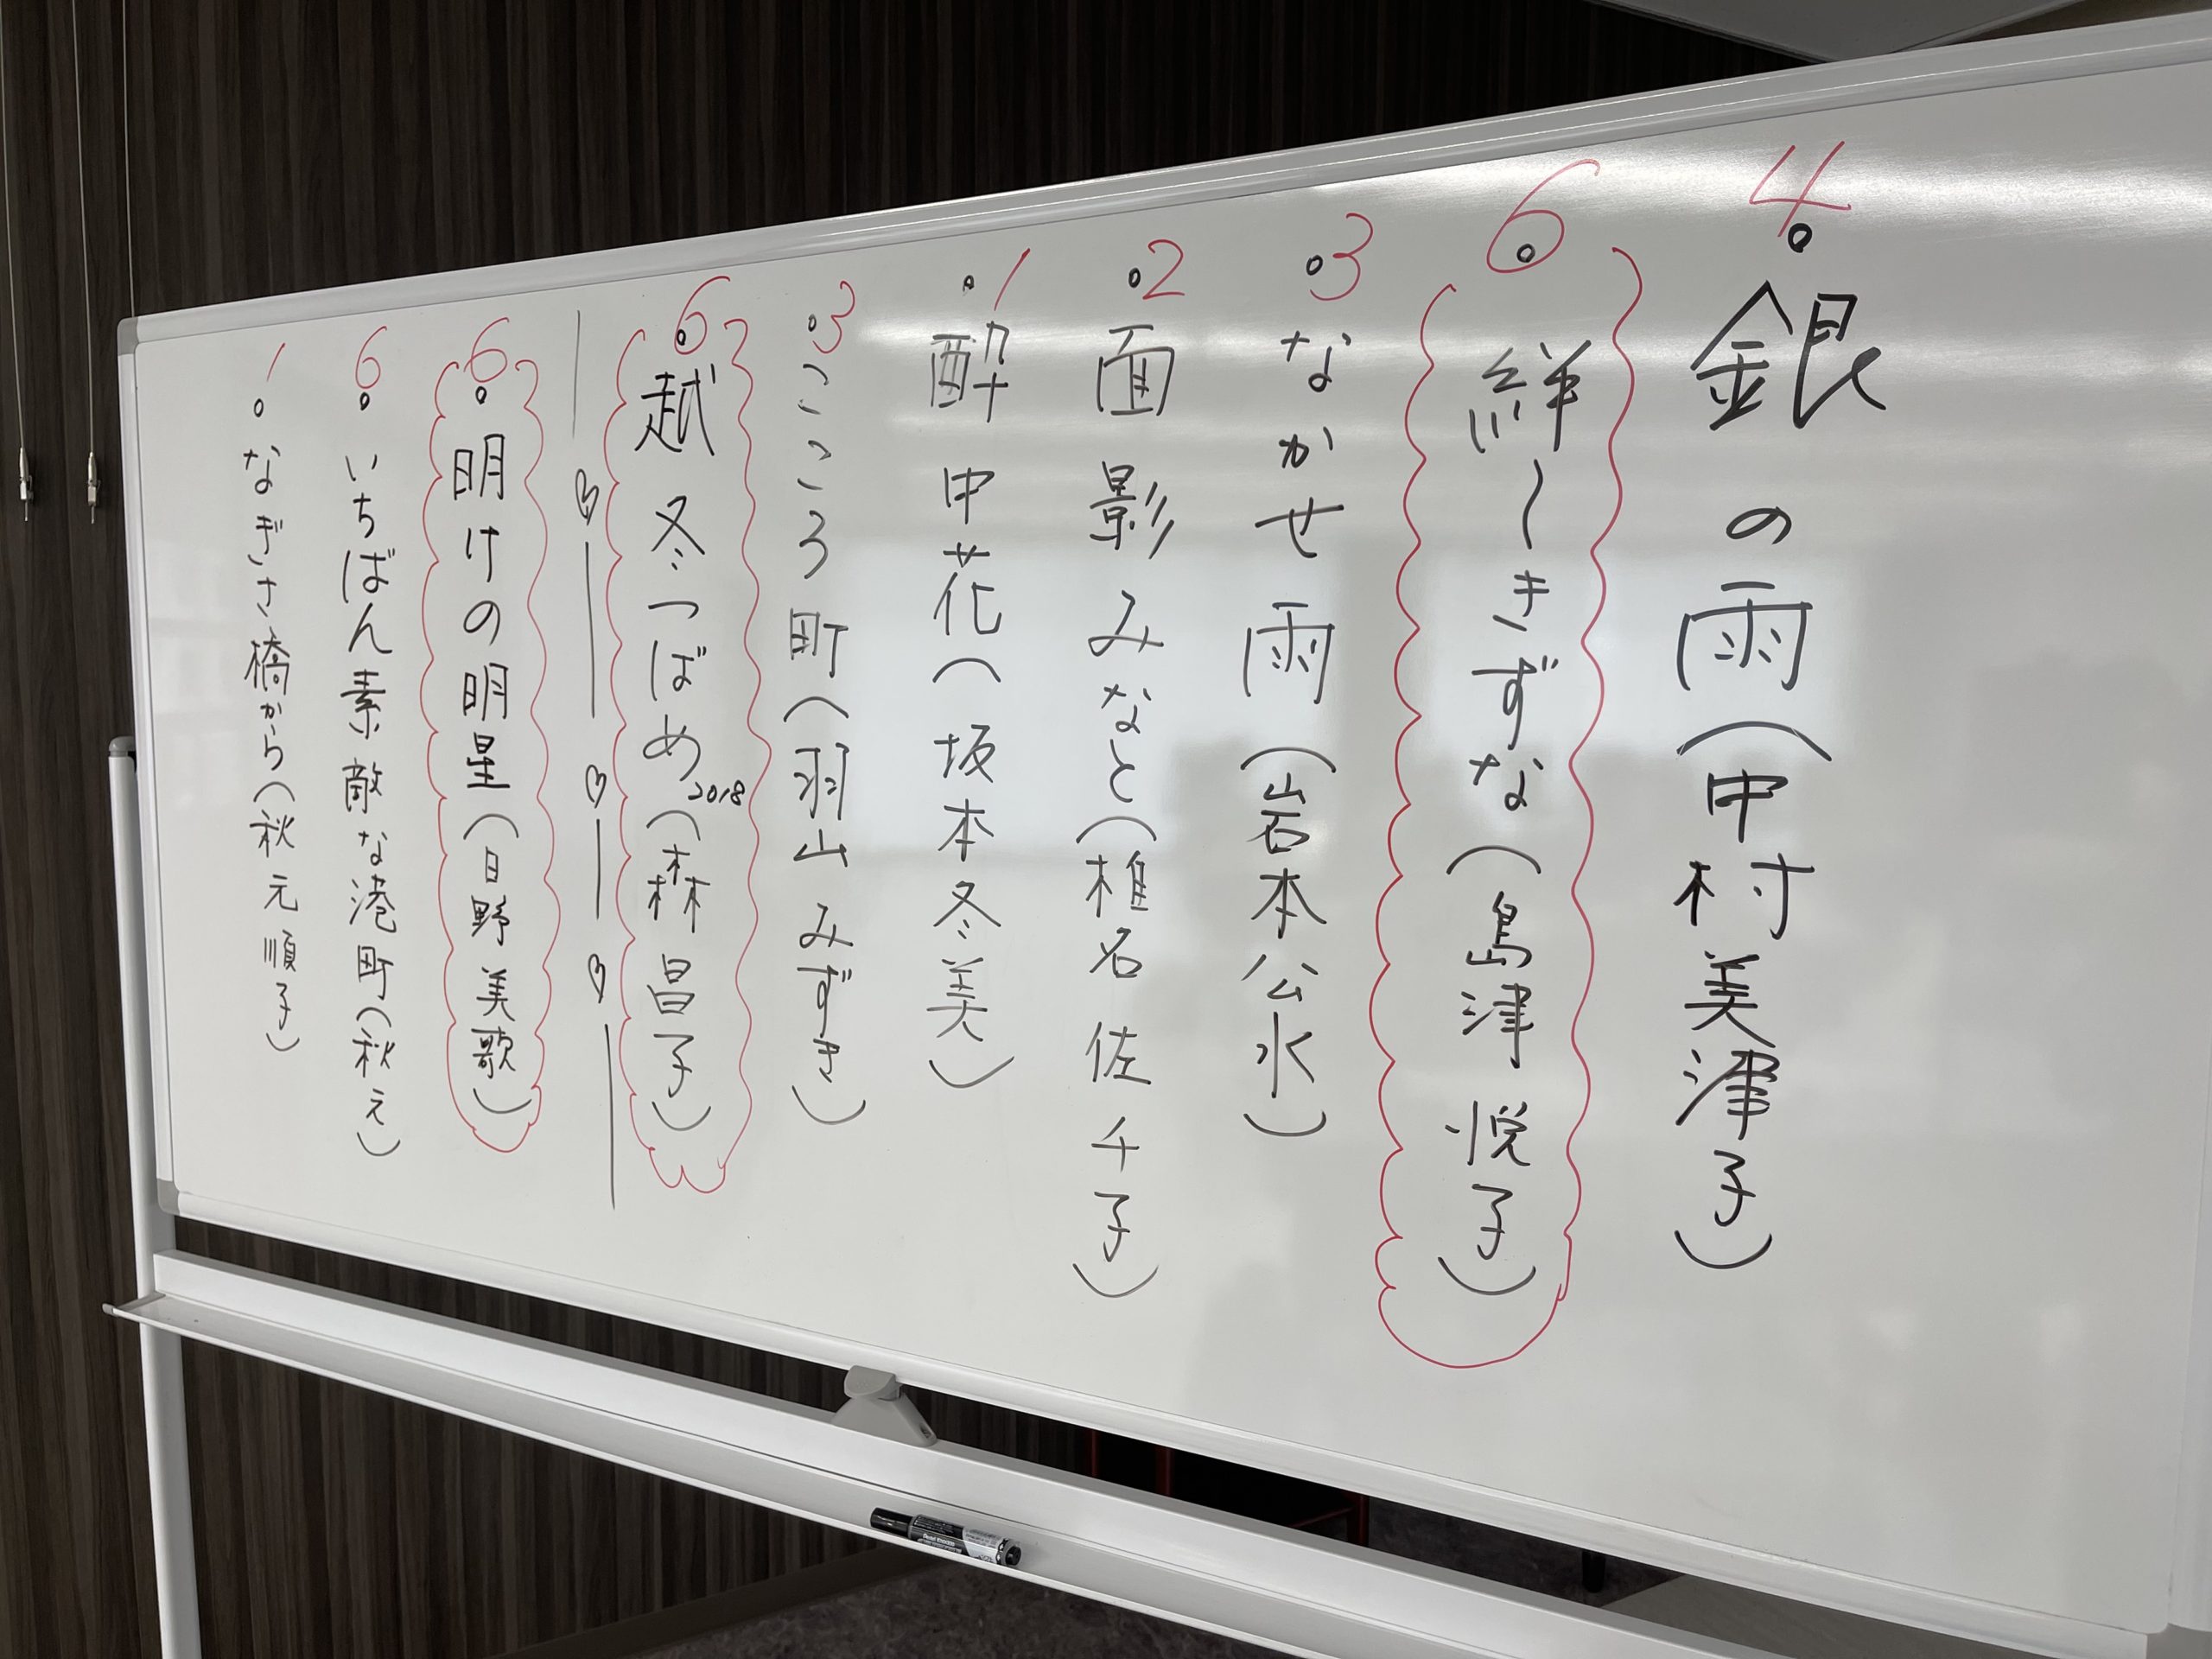 4
。銀の雨(中村美津子)
6
。絆〜きずな(島津悦子)
3
。なかせ雨(岩本公水)
2
。面影みなと(椎名佐千子)
1
。酔中花(坂本冬美)
3
。こころ町(羽山みずき)
6
。越冬つばめ2018(森昌子)
6
。明けの明星(日野美歌)
6
。いちばん素敵な港町(秋元)
1
。なぎさ橋から(秋元順子)